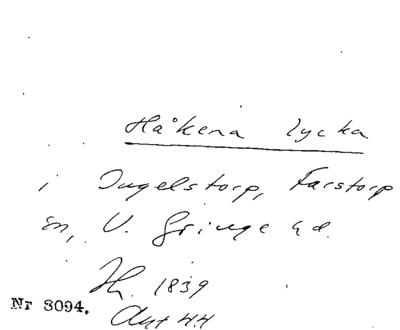 Håkena lycka
i Ingelstorp, Farstorp
sn, V. Göinge hd.
Jh. 1839
Nr 3094. Akt 44